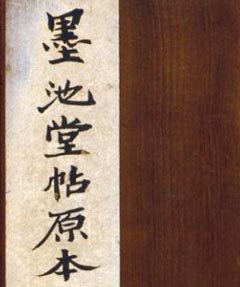 墨池堂帖原本